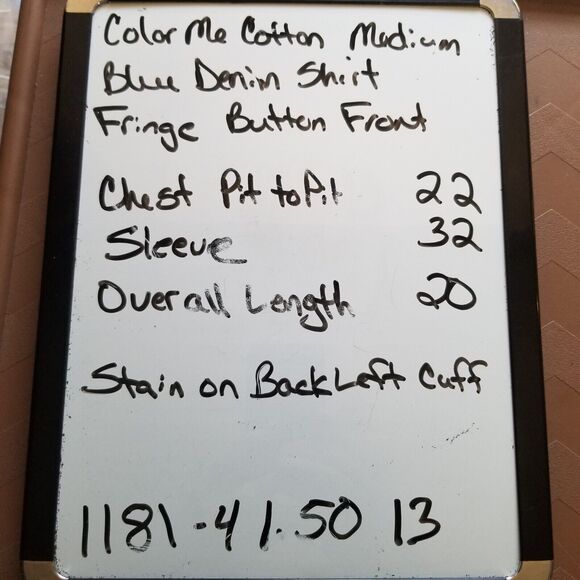 Color Me Cotton Medium
Blue Denim Shirt
Fringe Button Front
Chest Pit to Pit 22
Sleeve 32
Overall Length 20
Stain on Back Left Cuff
1181-41.50 13